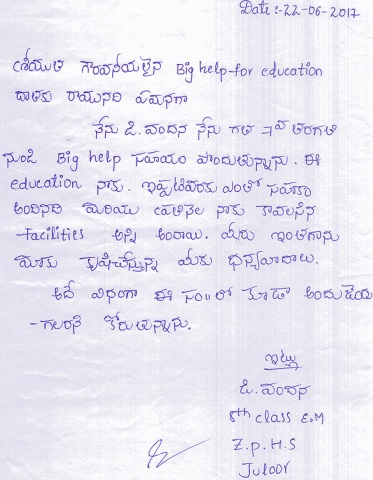 Date :- 22-06-2017
శ్రీయుత గౌరవనీయులైన Big help for education
దాతకు రాయునది ఏమనగా
నేను డి. వందన నేను గత 7వ తరగతి
నుండి Big help సహాయం పొందుతున్నాను. ఈ
education నాకు. ఇప్పటివరకు ఎంతో సహకా
అందినది మరియు ప్రతినెల నాకు కావలసిన
facilities అన్ని అందాయి. మీరు ఇంతగాను
మాకు కృషిచేస్తున్న మీకు ధన్యవాదాలు.
అదే విధంగా ఈ సం॥లో కూడా అందుజేయ
-గలరని కోరుతున్నాను.
ఇట్లు
డి. వందన
8th class E.M
Z.P.H.S
Juloor